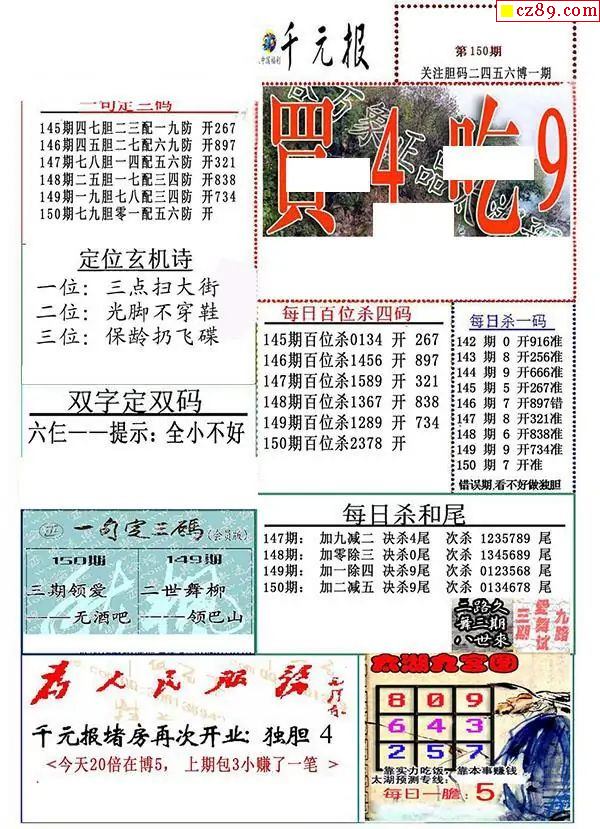 cz89.com
千元报
第150期
关注胆码二四五六博一期
一句定三码
145期四七胆二三配一九防 开267
146期四五胆二七配六九防 开897
147期七八胆一四配五六防 开321
148期二五胆一七配三四防 开838
149期一九胆七八配三四防 开734
150期七九胆零一配五六防 开
買4吃9
定位玄机诗
一位: 三点扫大街
二位: 光脚不穿鞋
三位: 保龄扔飞碟
每日百位杀四码
145期百位杀0134 开 267
146期百位杀1456 开 897
147期百位杀1589 开 321
148期百位杀1367 开 838
149期百位杀1289 开 734
150期百位杀2378 开
每日杀一码
142 期 0 开916准
143 期 8 开256准
144 期 9 开666准
145 期 5 开267准
146 期 7 开897错
147 期 8 开321准
148 期 6 开838准
149 期 9 开734准
150 期 7 开准
错误期,看不好做独胆
双字定双码
六仨——提示: 全小不好
一句定三碼(会员版)
150期
三期领爱
——无酒吧
149期
二世舞柳
——领巴山
每日杀和尾
147期: 加九减二 决杀4尾 次杀 1235789 尾
148期: 加零除三 决杀0尾 次杀 1345689 尾
149期: 加一除四 决杀9尾 次杀 0123568 尾
150期: 加二减五 决杀9尾 次杀 0134678 尾
二路久
舞三期
八世來
三期
愛舞试
九路
為人民服務
千元报堵房再次开业: 独胆 4
<今天20倍在博5, 上期包3小赚了一笔 >
太湖九宫图
8 0 9
6 4 3
2 5 7
靠实力吃饭 靠本事赚钱
太湖预测专线:
每日一胆: 5